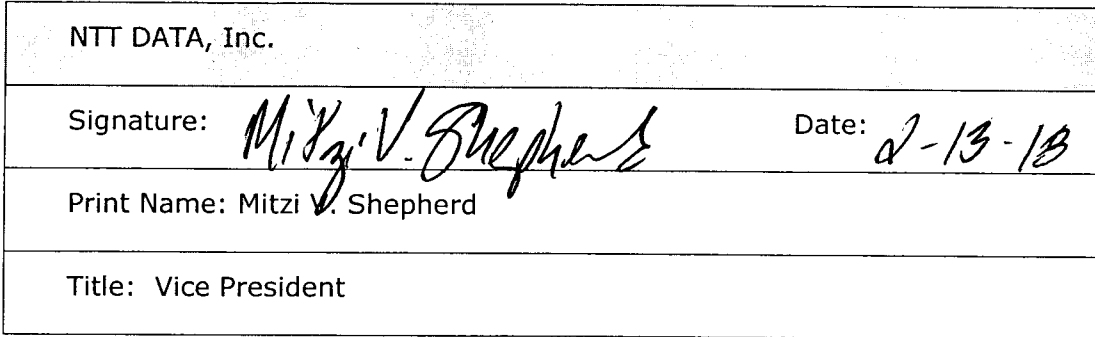 NTT DATA, Inc.
Signature: Mitzi V. Shepherd Date: 2-13-18
Print Name: Mitzi V. Shepherd
Title: Vice President